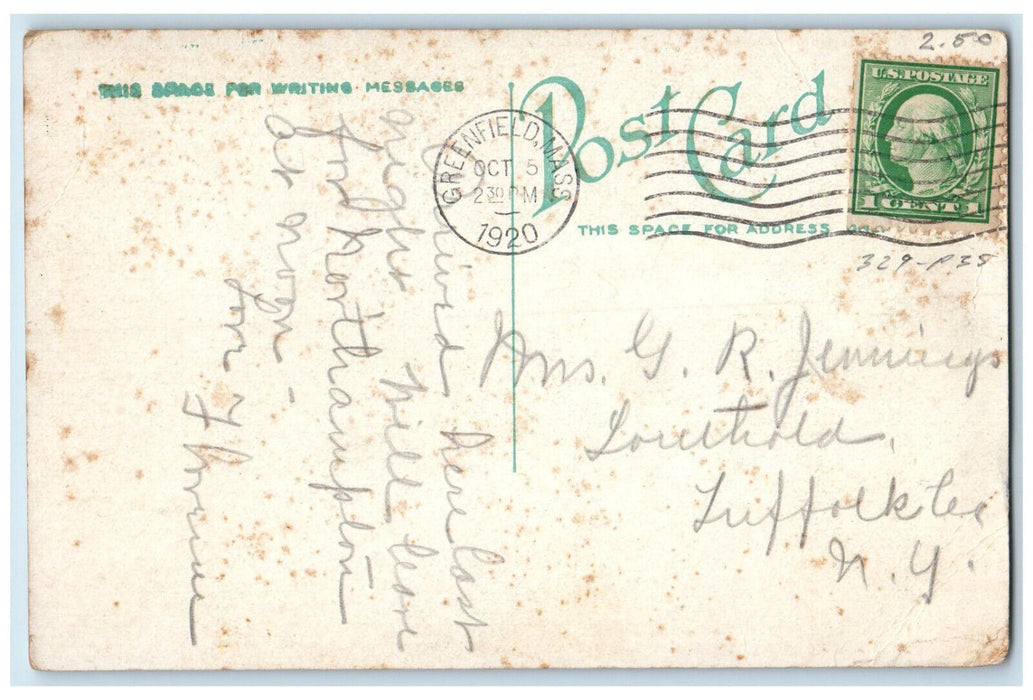 2.50
THIS SPACE FOR WRITING MESSAGES
Post Card
U.S. POSTAGE
1 CENT 1
GREENFIELD, MASS
OCT 5
2 30 PM
1920
THIS SPACE FOR ADDRESS ONLY
329-P35
Arrived here last
night. Will leave
for Northampton
at noon -
Mrs. G. R. Jennings
Southold,
Suffolk Co
N. Y.